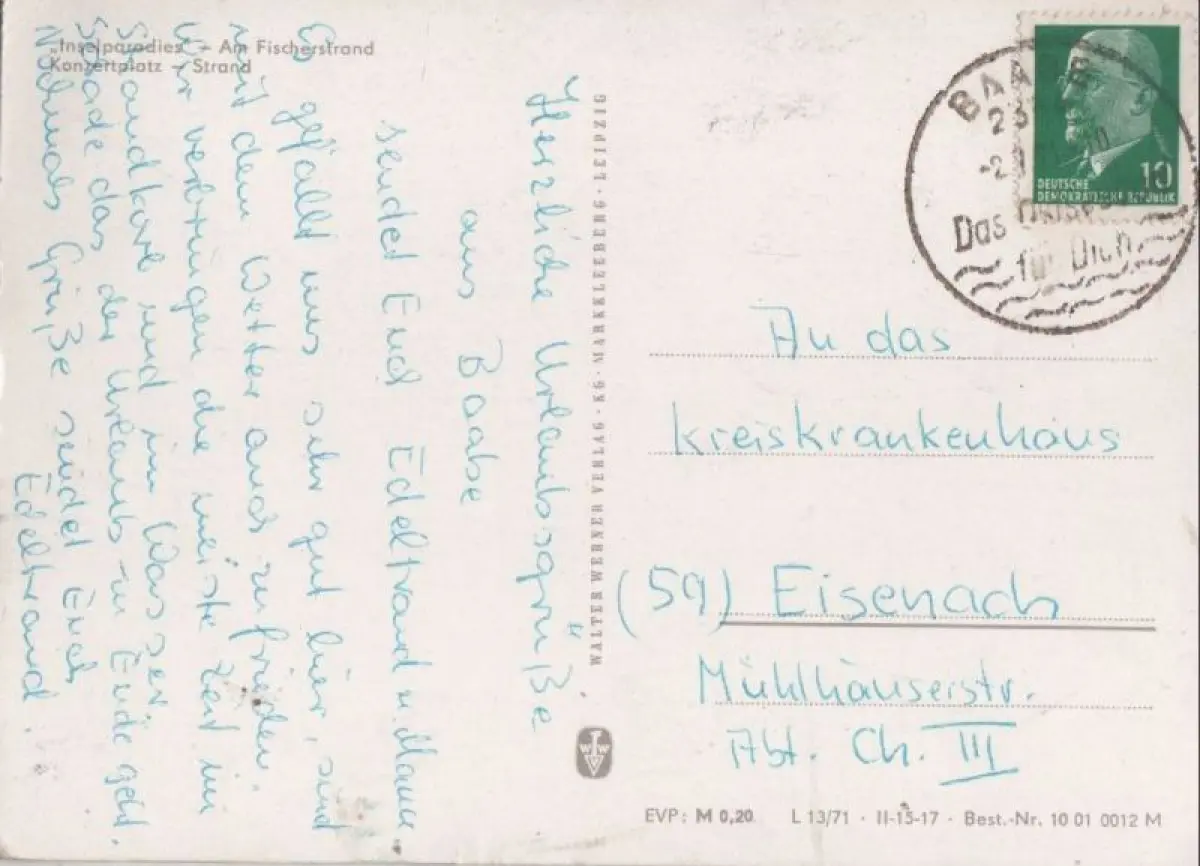 „Inselparadies" – Am Fischerstrand
Konzertplatz – Strand
Herzliche Urlaubsgrüße
aus Baabe
sendet Euch Edeltraud u. Mann
Es gefällt uns sehr gut hier, sind
mit dem Wetter auch zufrieden.
Wir verbringen die meiste Zeit im
Strandkorb und im Wasser.
Schade das der Urlaub zu Ende geht.
Nochmals Grüße sendet Euch
Edeltraud.
WALTER WERNER VERLAG · KG · MARKKLEEBERG · LEIPZIG
WWV
BAABE
23
Das
für Dich
10
DEUTSCHE
DEMOKRATISCHE REPUBLIK
An das
Kreiskrankenhaus
(59) Eisenach
Mühlhäuserstr.
Abt. Ch. III
EVP: M 0,20 L 13/71 · II-15-17 · Best.-Nr. 10 01 0012 M